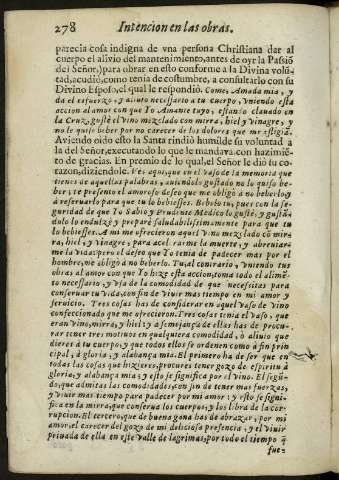 278 Intencion en las obras.
parecia cosa indigna de vna persona Christiana dar al
cuerpo el alivio del mantenimiento, antes de oyr la Passiõ
del Señor,) para obrar en esto conforme a la Divina volũ-
tad, acudió, como tenia de costumbre, a consultarlo con su
Divino Esposo, el qual le respondió. Come, Amada mia, y
da el esfuerzo, y alivio necessario a tu cuerpo, vniendo esta
accion al amor con que Yo Amante tuyo, estando clavado en
la Cruz, gusté el Vino mezclado con mirra, hiel y vinagre, y
no le quise beber por no carecer de los dolores que me estigiã.
Aviendo oido esto la Santa rindió humilde su voluntad a
la del Señor, executando lo que le mandava con hazimiẽ-
to de gracias. En premio de lo qual, el Señor le dió tu co-
razon, diziendole. Ves aqui, que en el vaso de la memoria que
tienes de aquellas palabras, aviendolo gustado no lo quiso be-
ber; te presento el amoroso deseo que me obligó à no beberlo, y
à reservarlo para que tu lo bebiesses. Bebelo tu, pues con la se-
guridad de que Yo Sabio y Prudente Medico lo gusté, y gustã-
dolo lo endulzé y preparé saludabilissimamente para que tu
lo bebiesses. A mi me ofrecieron aquel vino mezclado cõ mir-
ra, hiel, y vinagre, para acelerarme la muerte, y abreviar-
me la vida: pero el deseo que Yo tenia de padecer mas por el
hombre, me obligó à no beberlo. Tu, al contrario, vniendo tus
obras al amor con que Yo hize esta accion, toma todo el alimẽ-
to necessario, y vsa de la comodidad de que necesitas para
conservar tu vida, con fin de vivir mas tiempo en mi amor y
servicio. Tres cosas has de considerar en aquel vaso de Vino
confeccionado que me ofrecieron. Tres cosas tenia el vaso, que
eran vino, mirra, y hiel: y à semejança de ellas has de procu-
rar tener tres motivos en qualquiera comodidad, ò alivio que
dieres à tu cuerpo, y que todos ellos se ordenen como à fin prin-
cipal, à gloria, y alabança mia. El primero ha de ser que en
todas las cosas que hizieres, procures tener gozo de espiritu à
gloria, y alabança mia: y esto se significa por el vino. El segũ-
do, que admitas las comodidades, con fin de tener mas fuerzas,
y vivir mas tiempo para padecer por mi amor: y esto se signi-
fica en la mirra, que conserva los cuerpos, y los libra de la cor-
rupcion. El tercero, que de buena gana has de abrazar, por mi
amor, el carecer del gozo de mi deliciosa presencia, y el vivir
privada de ella en este valle de lagrimas, por todo el tiempo q̃
fue-